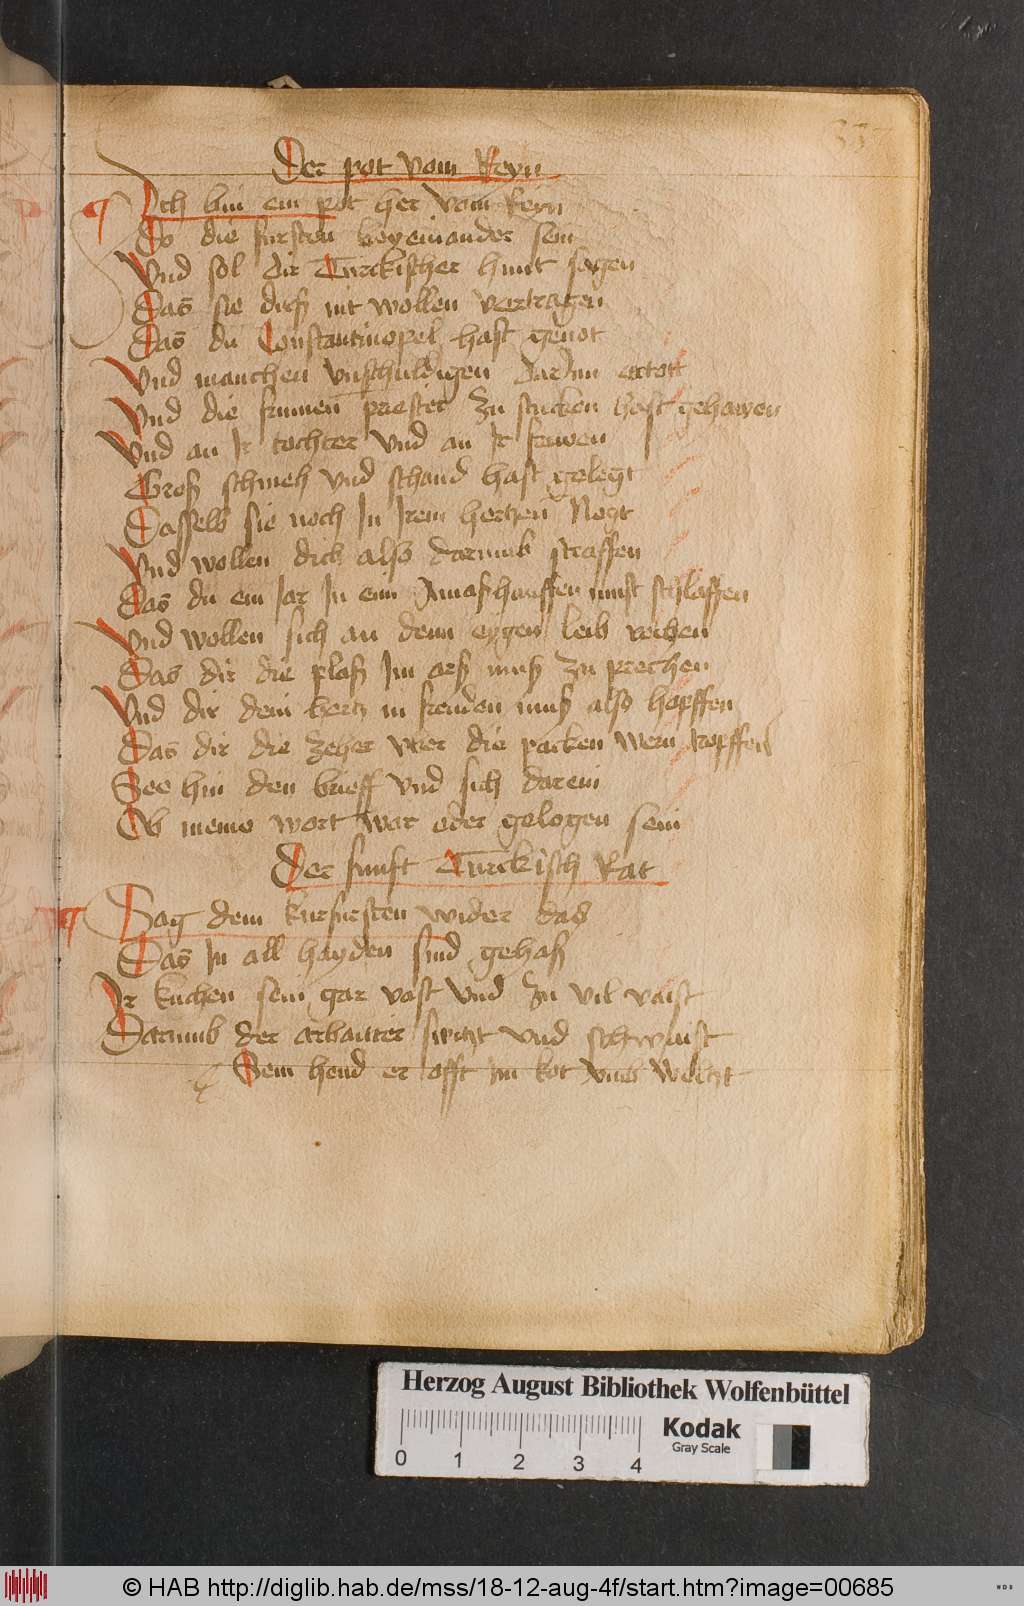 337
Der pot vom Reyn
Ich bin ein pot her vom Reyn
Do die fursten beyeinander sein
Vnd sol dir Turckischer hunt sagen
Das sie dirß nit wollen vertragen
Das du Constantinopel hast genot
Vnd manchen vnschuldigen darInn ertott
Vnd die frumen priester zu stucken hast gehawen
Vnd an Ir tochter vnd an Ir frawen
Groß schmeh vnd schand hast gelegt
Dasselb sie noch In Irem hertzen Negt
Vnd wollen dich also darumb straffen
Das du ein Jar In eim Amaßhauffen must schlaffen
Vnd wollen sich an deim eygen leib rechen
Das dir die plaß Im arß muß zu prechen
Vnd dir dein hertz in freuden muß also hopffen
Das dir die zeher vber die packen wern tropffen
See hin den brieff vnd sich darein
Ob meine wort war oder gelogen sein
Der funft Turckisch Rat
Sag dem kurfursten wider das
Das In all hayden sind gehaß
Ir kuchen sein gar vast vnd zu vil vaist
Darumb der arbaiter switzt vnd schwaist
Sein hend er offt im kot vmb weltzt
Herzog August Bibliothek Wolfenbüttel
Kodak
Gray Scale
0 1 2 3 4
© HAB http://diglib.hab.de/mss/18-12-aug-4f/start.htm?image=00685